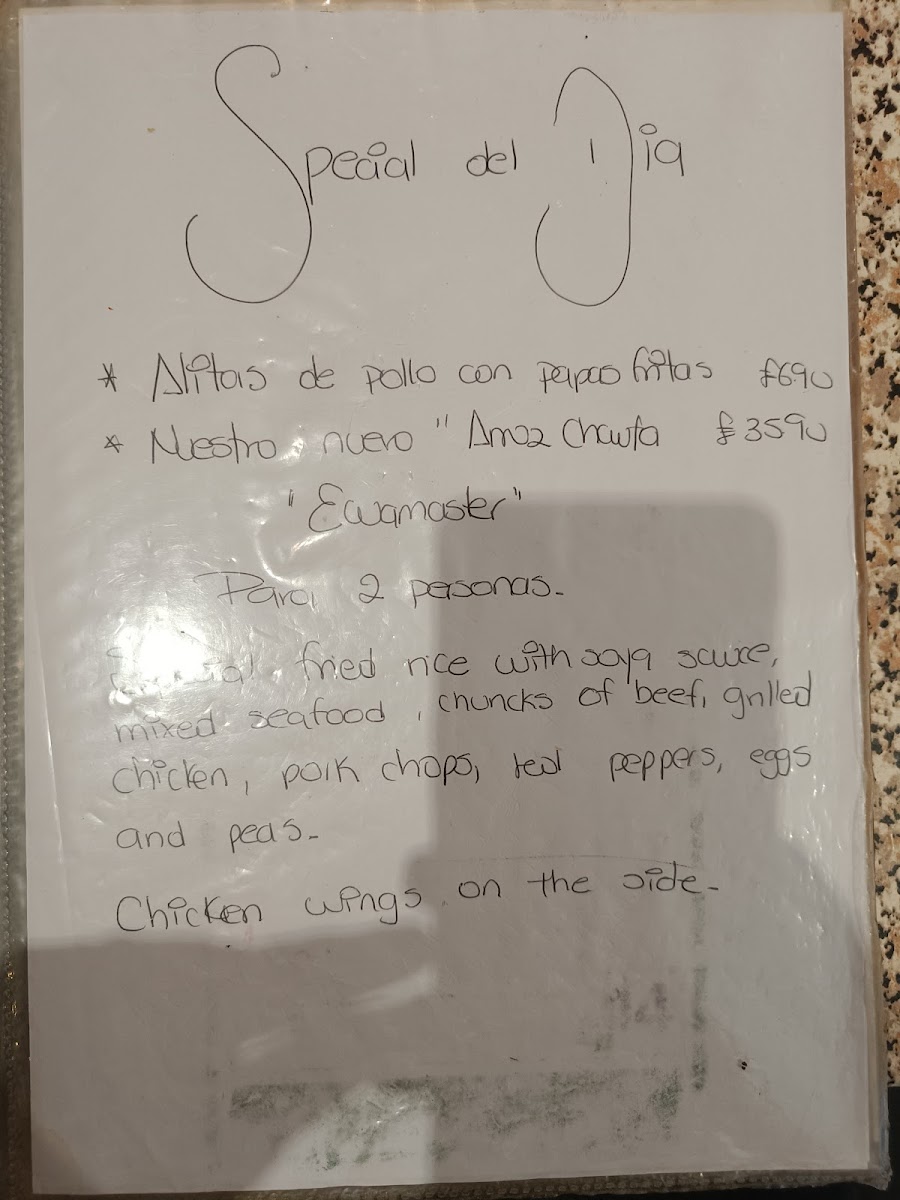 Special del Dia
* Alitas de pollo con papas fritas £6.90
* Nuestro nuevo " Arroz Chaufa £35.90
"Ewamaster"
Para 2 personas.
fried rice with soya sauce,
mixed seafood, chuncks of beef, grilled
chicken, pork chops, red peppers, eggs
and peas.
Chicken wings on the side.